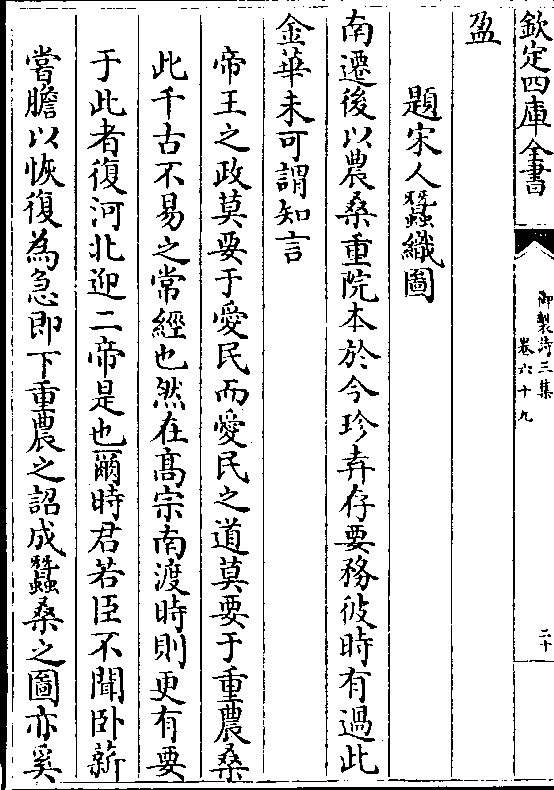 欽定四庫全書
御製詩三集
卷六十九
二十
盈
題宋人蠶織圖
南遷後以農桑重院本於今珍弆存要務彼時有過此
金華未可謂知言
帝王之政莫要于愛民而愛民之道莫要于重農桑
此千古不易之常經也然在髙宗南渡時則更有要
于此者復河北迎二帝是也爾時君若臣不聞卧薪
嘗膽以恢復為急即下重農之詔成蠶桑之圖亦奚